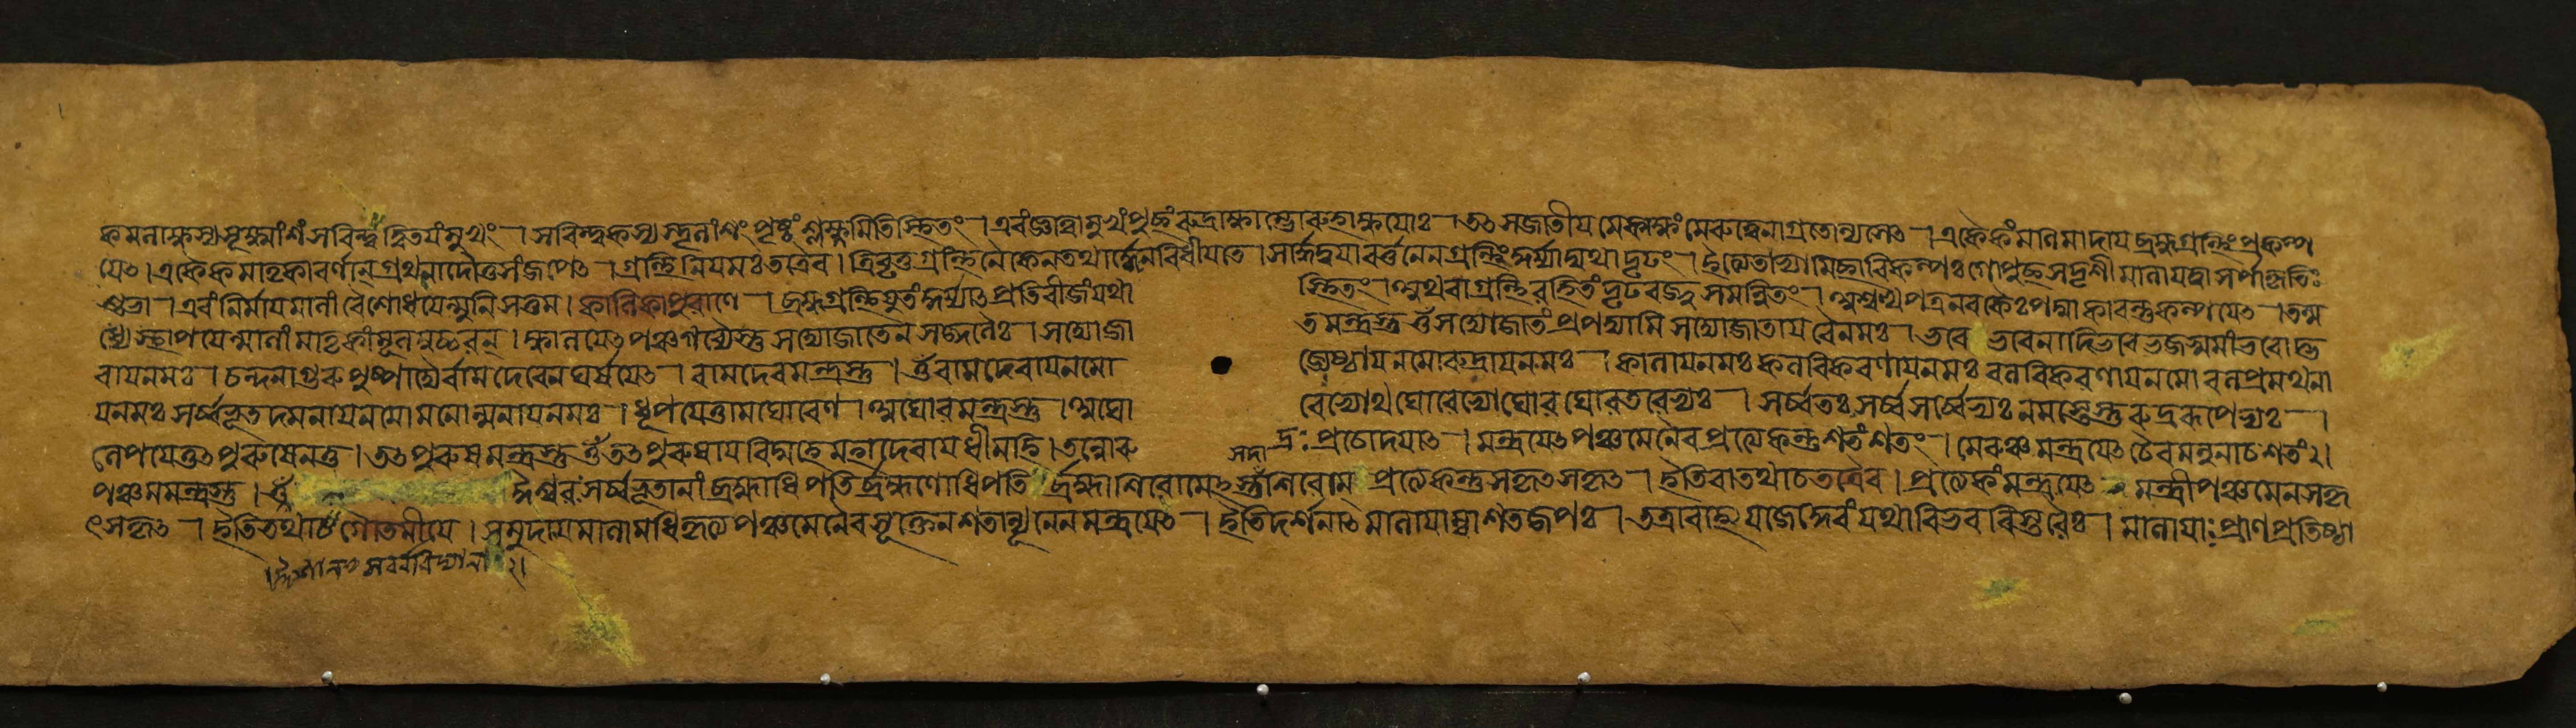 কমলাক্ষস্য সূক্ষ্মাংশং সবিন্দুদ্বিতয়ং মুখং । সবিন্দুকস্য স্থূলাংশং পৃষ্ঠং শ্লক্ষ্ণমিতি স্থিতং । এবং জ্ঞাত্বা মুখং পুচ্ছং রুদ্রাক্ষাম্ভোরুহাক্ষয়োঃ । তৎ সজাতীয়মেকাক্ষং মেরুত্বেনাগ্রতো ন্যসেৎ । একৈকং মণিমাদায় ব্রহ্মগ্রন্থিং প্রকল্প
য়েৎ । একৈক মাতৃকাবর্ণান্ গ্রথনাদৌ তু সংজপেৎ । গ্রন্থিনিয়মঃ তত্রৈব । ত্রিবৃত্তগ্রন্থিনৈকেন তথার্দ্ধেন বিধীয়তে । সার্দ্ধদ্বয়াবর্ত্তনেন গ্রন্থিং কুর্য্যাদ্যথা দৃঢং । ইত্যেতাভ্যামিচ্ছাবিকল্পঃ গোপুচ্ছসদৃশী মালা যদ্বা সর্পাকৃতিঃ
শুভা । এবং নির্মায় মালাং বৈ শোধয়েন্মুনিসত্তম । কালিকাপুরাণে । ব্রহ্মগ্রন্থিযুতং কুর্য্যাৎ প্রতিবীজং যথা স্থিতং । অথবা গ্রন্থিরহিতং দৃঢরজ্জুসমন্বিতং । অশ্বত্থপত্রনবকৈঃ পদ্মাকারন্তু কল্পয়েৎ । তন্ম
ধ্যে স্থাপয়েন্মালাং মাতৃকাং মূলমুচ্চরন্ । ক্ষালয়েৎ পঞ্চগব্যৈস্তু সদ্যোজাতেন সজ্জলৈঃ । সদ্যোজা তমন্ত্রস্তু ওঁ সদ্যোজাতং প্রপদ্যামি সদ্যোজাতায় বৈ নমঃ । ভবে ভবেনাদিভবে ভজস্ব মাং ভবোদ্ভ
বায় নমঃ । চন্দনাগুরুপুষ্পাদ্যৈর্বামদেবেন ঘর্ষয়েৎ । বামদেবমন্ত্রস্তু । ওঁ বামদেবায় নমো জ্যেষ্ঠায় নমো রুদ্রায় নমঃ । কালায় নমঃ কলবিকরণায় নমঃ বলবিকরণায় নমো বলপ্রমথনা
য় নমঃ সর্ব্বভূতদমনায় নমো মনোন্মনায় নমঃ । ধূপয়েত্তামঘোরেণ । অঘোরমন্ত্রস্তু । অঘো রেভ্যোথ ঘোরেভ্যো ঘোরঘোরতরেভ্যঃ । সর্ব্বতঃ সর্ব্বসর্ব্বেভ্যঃ নমস্তেস্তু রুদ্ররূপেভ্যঃ ।
লেপয়েত্তৎপুরুষেন তু । তৎপুরুষমন্ত্রস্তু ওঁ তৎপুরুষায় বিদ্মহে মহাদেবায় ধীমহি । তন্নো রু দ্রঃ প্রচোদয়াৎ । মন্ত্রয়েৎ পঞ্চমেনৈব প্রত্যেকন্তু শতং শতং । মেরুঞ্চ মন্ত্রয়েৎ চৈব মনুনা চ শতং ২ ।
সদা
পঞ্চমমন্ত্রস্তু । ওঁ ঈশ্বরং সর্ব্বভূতানাং ব্রহ্মাধিপতির্ব্রহ্মণোধিপতি র্ব্রহ্মা শিবো মেস্তু শিবোম্ প্রত্যেকন্তু সকৃৎ সকৃৎ । ইতি বা তথা চ তত্রৈব । প্রত্যেকং মন্ত্রয়েৎ মন্ত্রী পঞ্চমেন সকৃ
ৎ সকৃৎ । ইতি তথা চ গৌতমীয়ে । সমুদায়মালামধিকৃত্য পঞ্চমেনৈব সূক্তেন শতান্যূনেন মন্ত্রয়েৎ । ইতি দর্শনাৎ মালায়াম্বা শতজপঃ । তত্রাবাহ্য যজেদ্দেবং যথাবিভববিস্তরৈঃ । মালায়াঃ প্রাণপ্রতিষ্ঠা
। ঈশানঃ সর্ববিদ্যানাং ২ ।